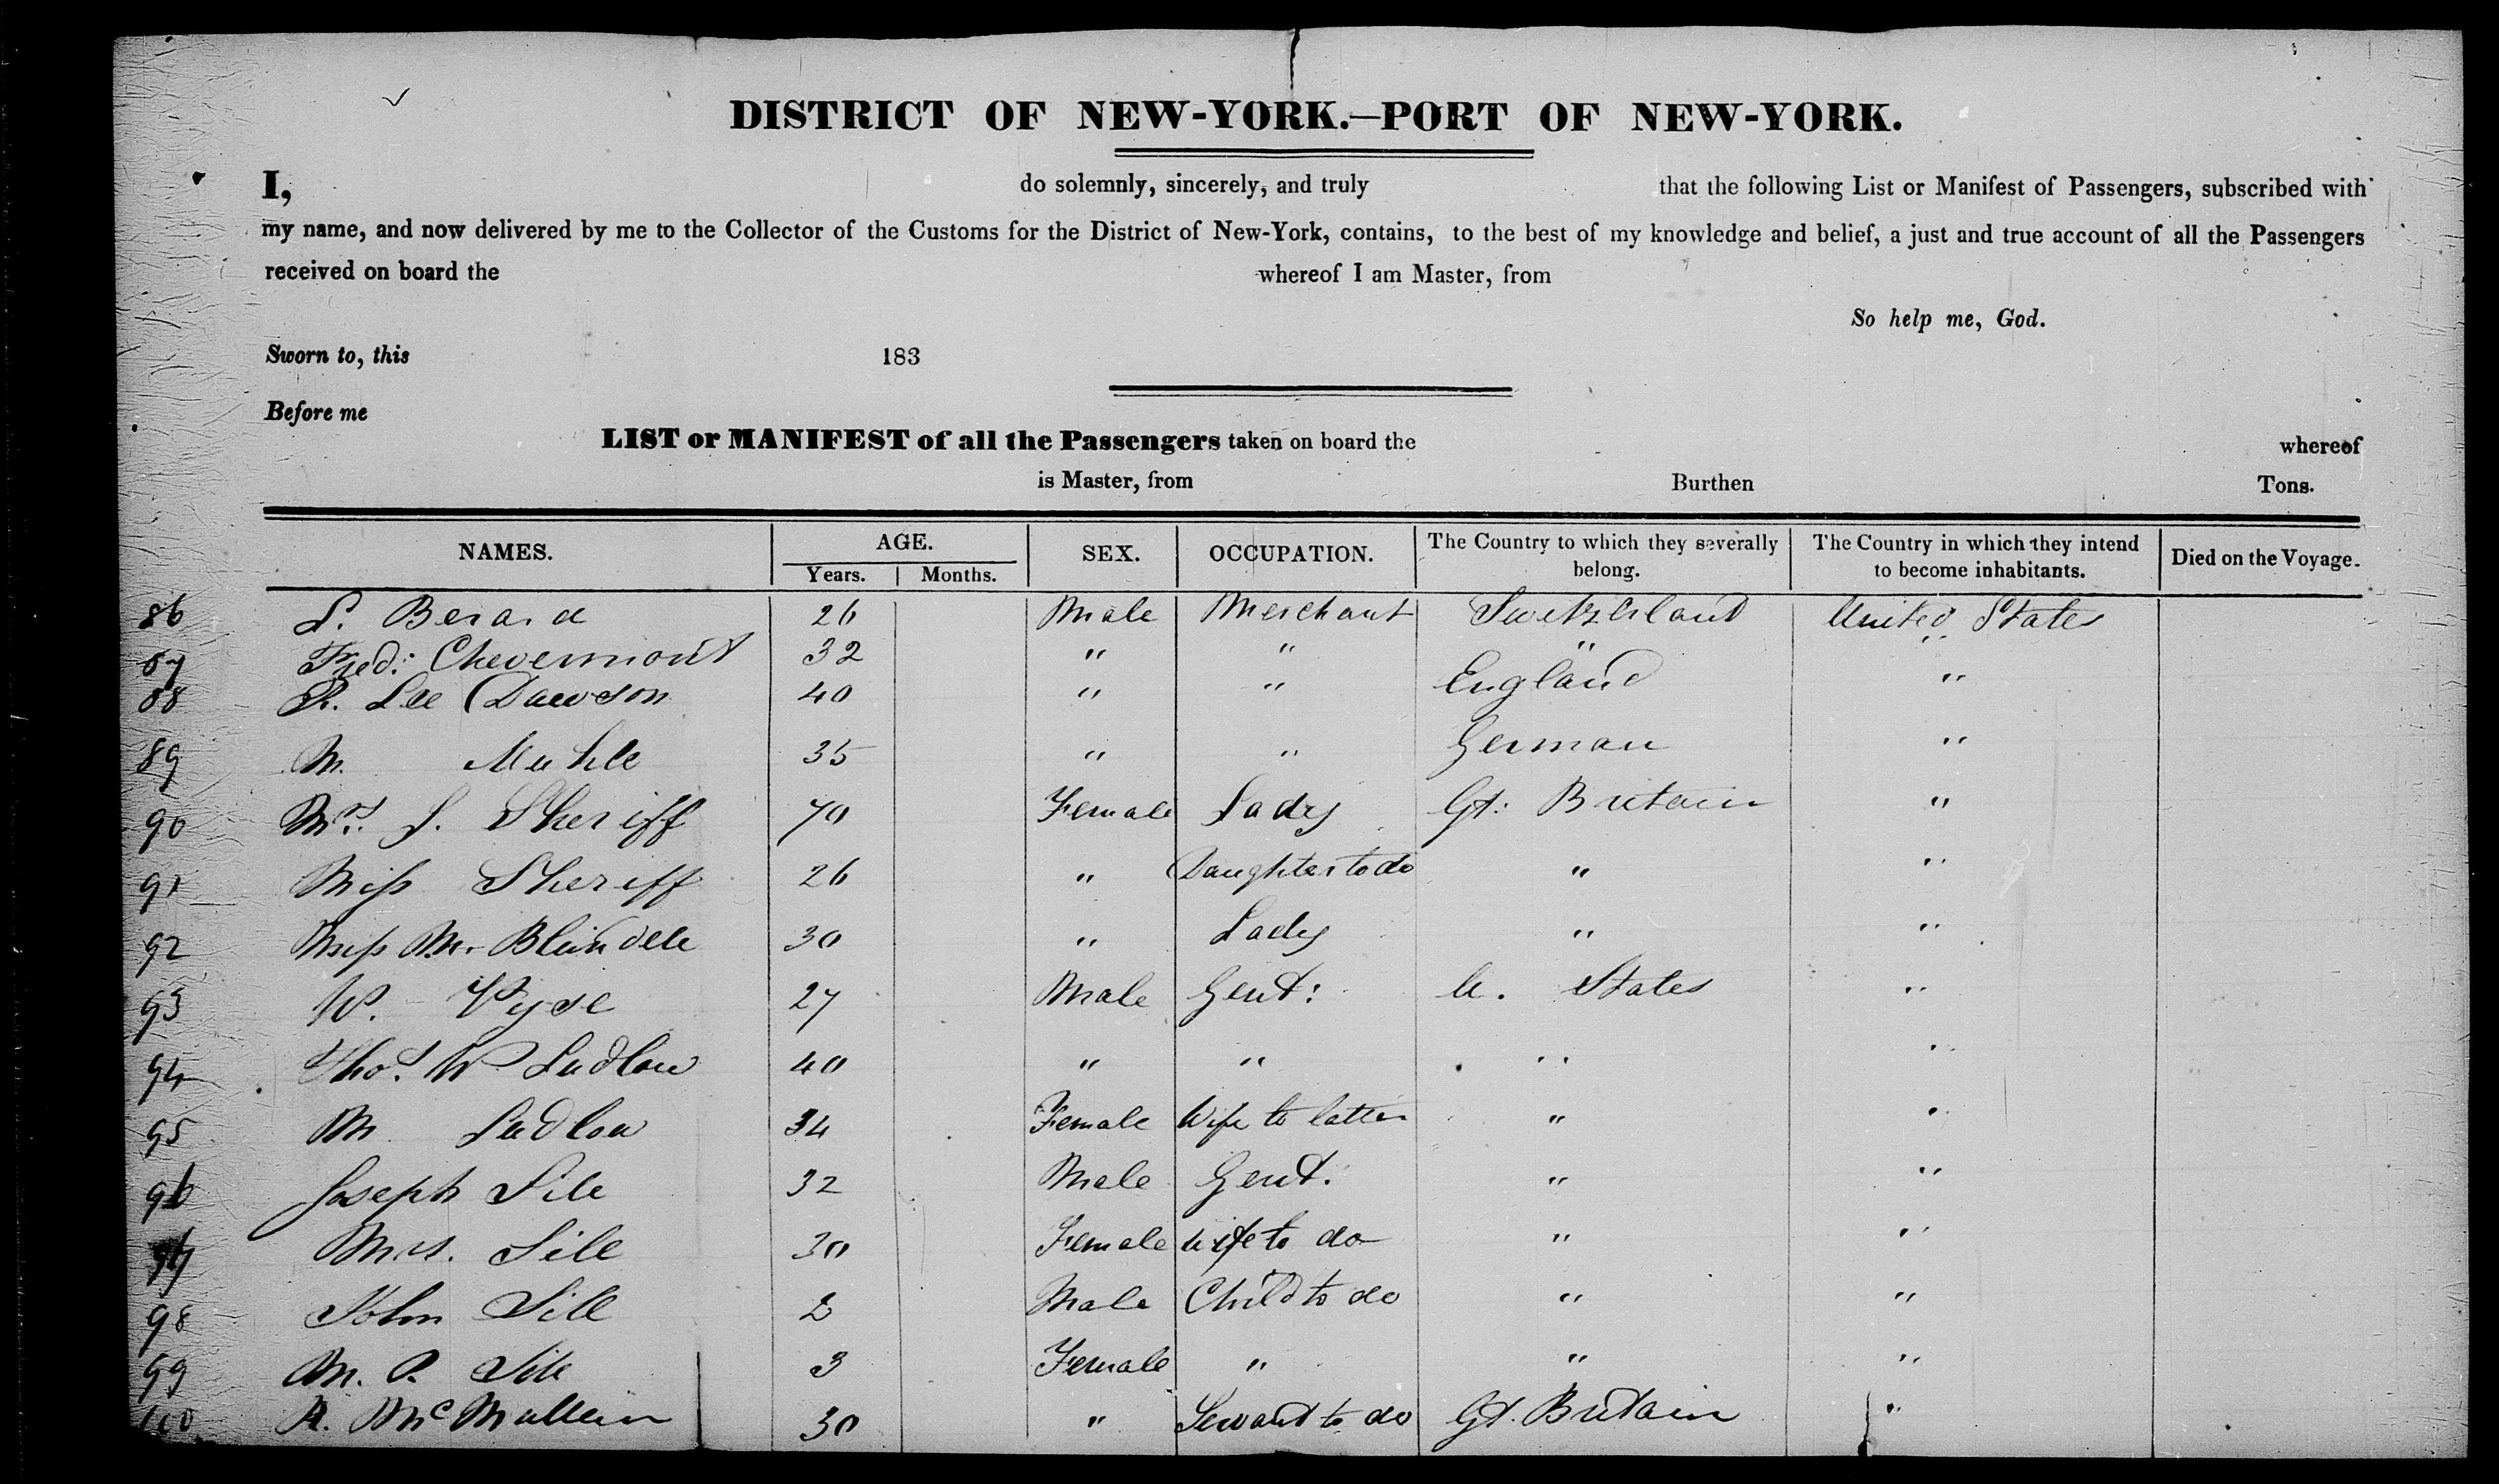 DISTRICT OF NEW-YORK.—PORT OF NEW-YORK.
I, do solemnly, sincerely, and truly that the following List or Manifest of Passengers, subscribed with
my name, and now delivered by me to the Collector of the Customs for the District of New-York, contains, to the best of my knowledge and belief, a just and true account of all the Passengers
received on board the whereof I am Master, from
So help me, God.
Sworn to, this 183
Before me
LIST or MANIFEST of all the Passengers taken on board the whereof
is Master, from Burthen Tons.
NAMES. AGE. Years. Months. SEX. OCCUPATION. The Country to which they severally belong. The Country in which they intend to become inhabitants. Died on the Voyage.
86 L. Berard 26 Male Merchant Switzerland United States
87 Fred: Chevermont 32 " " " "
88 R. Lee Dawson 40 " " England "
89 M. Muhle 35 " " German "
90 Mrs. S. Sheriff 70 Female Lady Gt: Britain "
91 Miss Sheriff 26 " Daughter to do " "
92 Miss M. Blundell 30 " Lady " "
93 W. Vyse 27 Male Gent: U. States "
94 Thos. W Ludlow 40 " " " "
95 M Ludlow 34 Female Wife to latter " "
96 Joseph Sill 32 Male Gent. " "
97 Mrs. Sill 30 Female wife to do " "
98 John Sill 2 Male Child to do " "
99 M. P. Sill 3 Female " " "
100 A. McMullen 30 " Servant to do Gt. Britain "